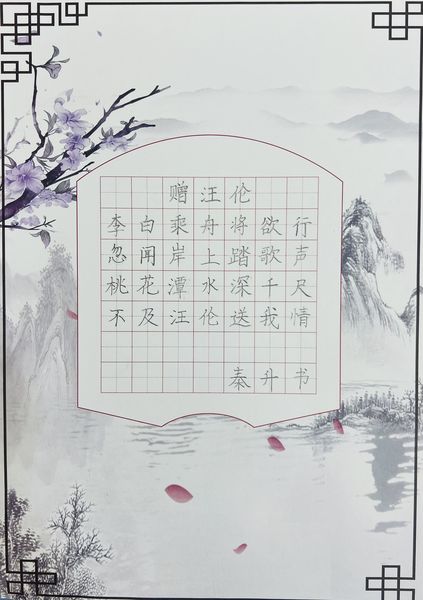 赠汪伦
李白乘舟将欲行
忽闻岸上踏歌声
桃花潭水深千尺
不及汪伦送我情
秦升书